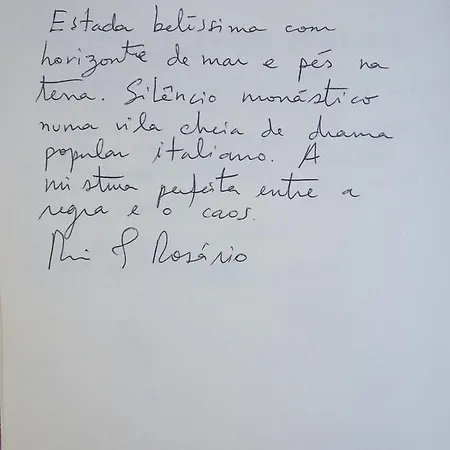 Estada belíssima com
horizonte de mar e pés na
terra. Silêncio monástico
numa vila cheia de drama
popular italiano. A
mistura perfeita entre a
regra e o caos.
Rosário